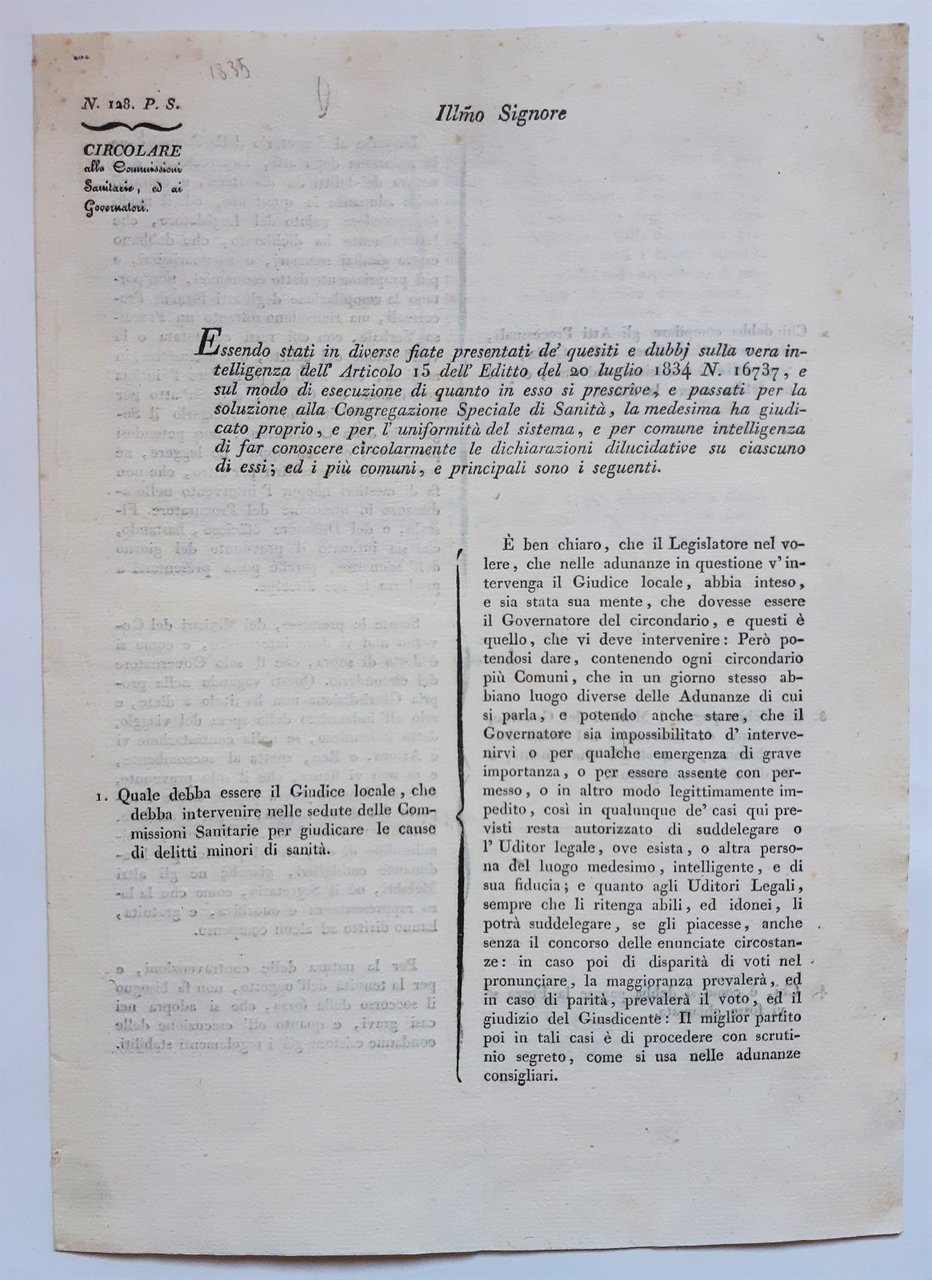 1835
N. 128. P. S.
Illm̃o Signore
CIRCOLARE
alle Commissioni
Sanitarie, ed ai
Governatori.
Essendo stati in diverse fiate presentati de' quesiti e dubbj sulla vera in-
telligenza dell' Articolo 15 dell' Editto del 20 luglio 1834 N. 16737, e
sul modo di esecuzione di quanto in esso si prescrive, e passati per la
soluzione alla Congregazione Speciale di Sanità, la medesima ha giudi-
cato proprio, e per l' uniformità del sistema, e per comune intelligenza
di far conoscere circolarmente le dichiarazioni dilucidative su ciascuno
di essi; ed i più comuni, e principali sono i seguenti.
1. Quale debba essere il Giudice locale, che
debba intervenire nelle sedute delle Com-
missioni Sanitarie per giudicare le cause
di delitti minori di sanità.
È ben chiaro, che il Legislatore nel vo-
lere, che nelle adunanze in questione v' in-
tervenga il Giudice locale, abbia inteso,
e sia stata sua mente, che dovesse essere
il Governatore del circondario, e questi è
quello, che vi deve intervenire: Però po-
tendosi dare, contenendo ogni circondario
più Comuni, che in un giorno stesso ab-
biano luogo diverse delle Adunanze di cui
si parla, e potendo anche stare, che il
Governatore sia impossibilitato d' interve-
nirvi o per qualche emergenza di grave
importanza, o per essere assente con per-
messo, o in altro modo legittimamente im-
pedito, così in qualunque de' casi qui pre-
visti resta autorizzato di suddelegare o
l' Uditor legale, ove esista, o altra perso-
na del luogo medesimo, intelligente, e di
sua fiducia; e quanto agli Uditori Legali,
sempre che li ritenga abili, ed idonei, li
potrà suddelegare, se gli piacesse, anche
senza il concorso delle enunciate circostan-
ze: in caso poi di disparità di voti nel
pronunciare, la maggioranza prevalerà, ed
in caso di parità, prevalerà il voto, ed il
giudizio del Giusdicente: Il miglior partito
poi in tali casi è di procedere con scruti-
nio segreto, come si usa nelle adunanze
consigliari.